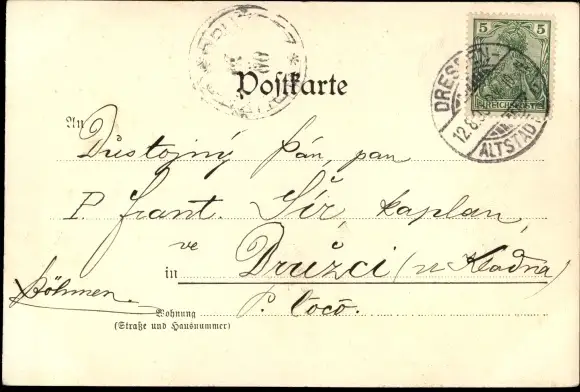 5 5
REICHSPOST
DRESDEN-
ALTSTADT
12.6.
Postkarte
An
Důstojný pán, pan
P. Frant. Šír, kaplan,
ve
in Družci (u Kladna)
Böhmen.
P. loco.
Wohnung
(Straße und Hausnummer)